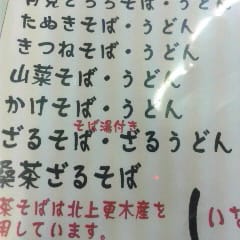 月見とろろそば・うどん
たぬきそば・うどん
きつねそば・うどん
山菜そば・うどん
かけそば・うどん
そば湯付き
ざるそば・ざるうどん
桑茶ざるそば
茶そばは北上更木産を
用しています。
いな